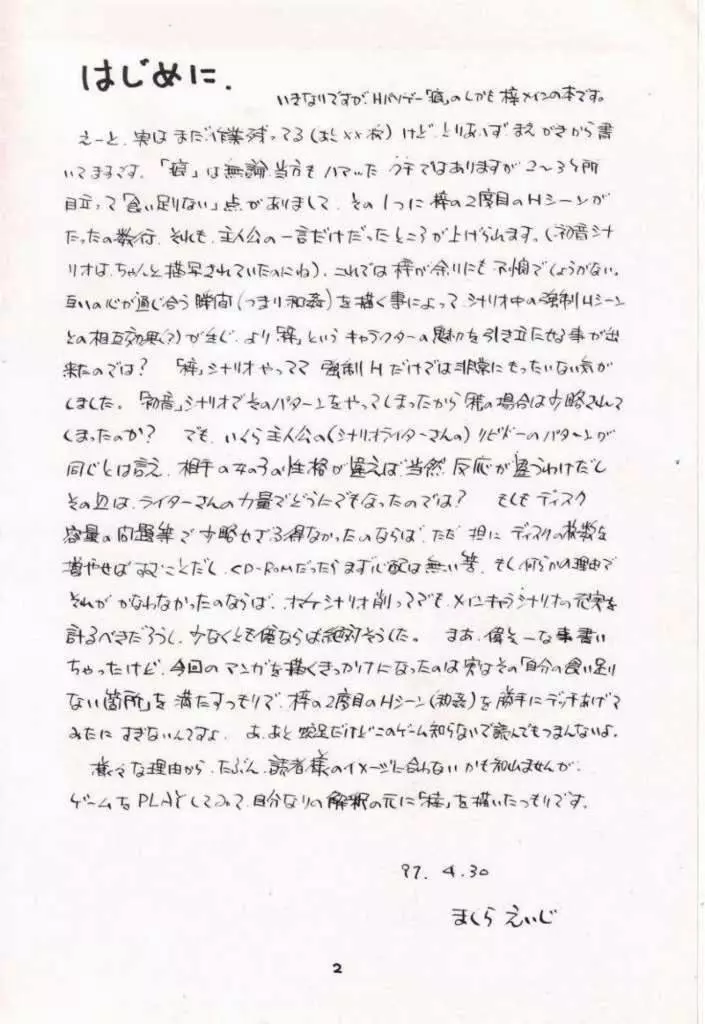 はじめに.
いきなりですが、Hパソゲー「痕」のしかも 梓メインの本です。
えーと、実は まだ作業残ってる(あと××枚)けど、とりあえず まえがきから書
いてまるです。「痕」は無論当方も ハマッた クチではありますが 2〜3ヶ所
目立って「食い足りない」点がありまして、その1つに 梓の2度目のHシーンが
たったの数行、それも、主人公の一言だけだったところが上げられます。(初音シナ
リオは、ちゃんと描写されていたのにね)、これでは 梓が余りにも 不憫でしょうがない。
互いの心が通じ合う 瞬間(つまり和姦)を描く事によって、シナリオ中の強制Hシーン
との相互効果(?)が生じ、より「梓」という キャラクターの魅力を引き立たせる事が出
来たのでは? 「梓」シナリオやってて 強制Hだけでは非常にもったいない気が
しました。「初音」シナリオでそのパターンをやってしまったから 梓の場合は少略されて
しまったのか? でも、いくら主人公の(シナリオライターさんの)リビドーのパターンが
同じとは言え、相手の女の子の性格が違えば当然 反応が違うわけだし
その辺は、ライターさんの力量でどうにでもなったのでは? もしも ディスク
容量の問題等で 少略せざる得なかったのならば、ただ 担に ディスクの枚数を
増やせば すむことだし、CD-ROMだったら まず心配は無い筈、もし何らかの理由で
それが かなわなかったのならば、オマケシナリオ削ってでも、メインキャラシナリオの充実を
計るべきだろうし、少なくとも俺ならば絶対そうした。 まあ、偉そーな事書い
ちゃったけど、今回のマンガを描くきっかけになったのは実はその「自分の食い足り
ない箇所」を 満たすつもりで、梓の2度目のHシーン(和姦)を勝手にデッチあげて
みたに すぎないんですよ。 あ、あと 蛇足だけどこのゲーム知らないで読んでもつまんないよ。
様々な理由から、たぶん、読者様のイメージに合わない かも知れませんが、
ゲームを PLAYしてみて、自分なりの解釈の元に「梓」を描いたつもりです。
97. 4.30
まくら えいじ
2